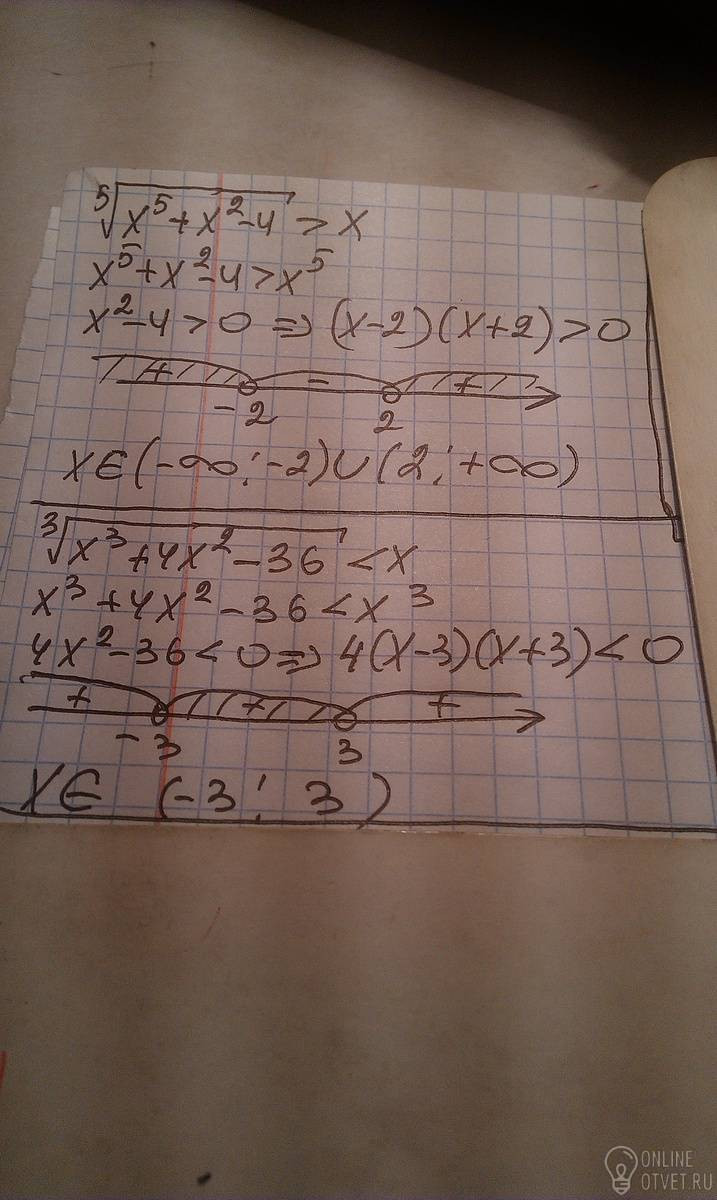 ⁵√(x⁵+x²-4) > x
x⁵+x²-4>x⁵
x²-4>0 => (x-2)(x+2)>0
+ - +
-2 2
x∈(-∞;-2)∪(2;+∞)
³√(x³+4x²-36) < x
x³+4x²-36<x³
4x²-36<0=> 4(x-3)(x+3)<0
+ + +
-3 3
x∈ (-3; 3)
ONLINE
OTVET.RU